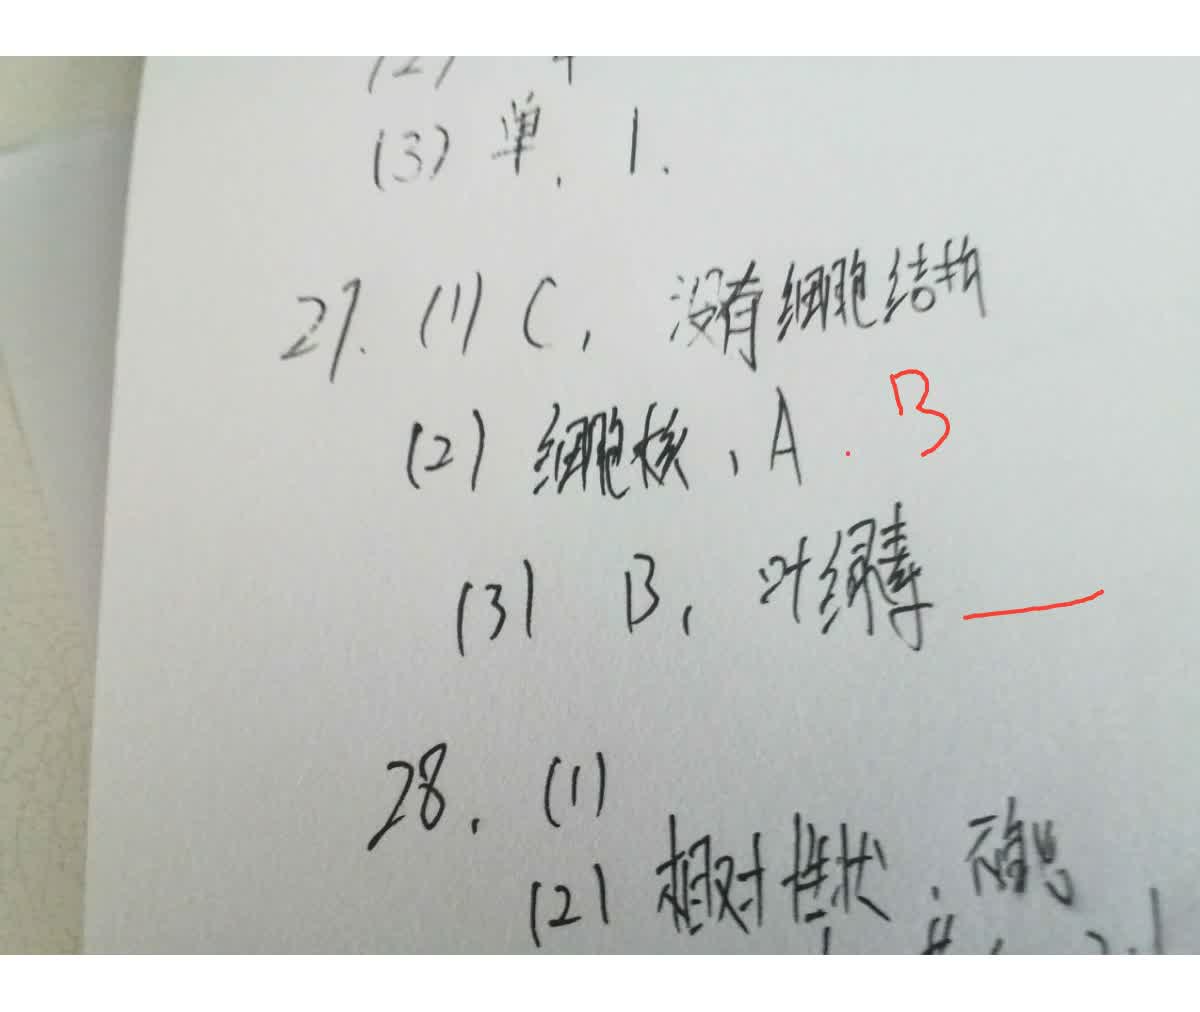 (2)
(3) 单、1.
27. (1) C, 没有细胞结构
(2) 细胞核、A. B
(3) B, 叶绿素
28. (1)
(2) 相对性状.